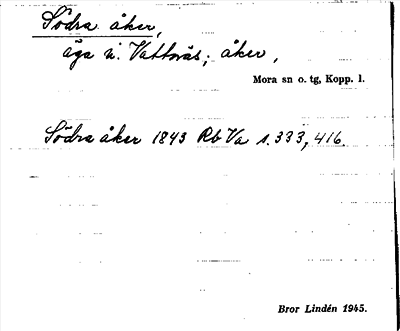 Södra åker,
äga i Vattnäs; åker,
Mora sn o. tg, Kopp. l.
Södra åker 1843 Rb Va s. 333, 416.
Bror Lindén 1945.